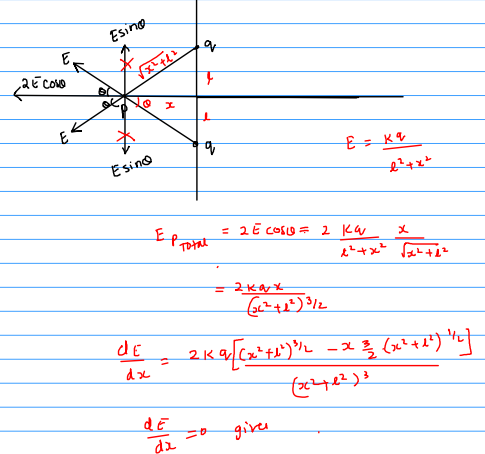 E sinθ
q
E
√x²+l²
l
2E cosθ
θ
θ
P
θ
x
l
E
q
E sinθ
E = kq / l²+x²
E P Total = 2E cosθ = 2 kq / l²+x² x / √x²+l²
= 2kqx / (x²+l²)^3/2
dE/dx = 2kq[(x²+l²)^3/2 − x 3/2 (x²+l²)^1/2] / (x²+l²)^3
dE/dx = 0 gives